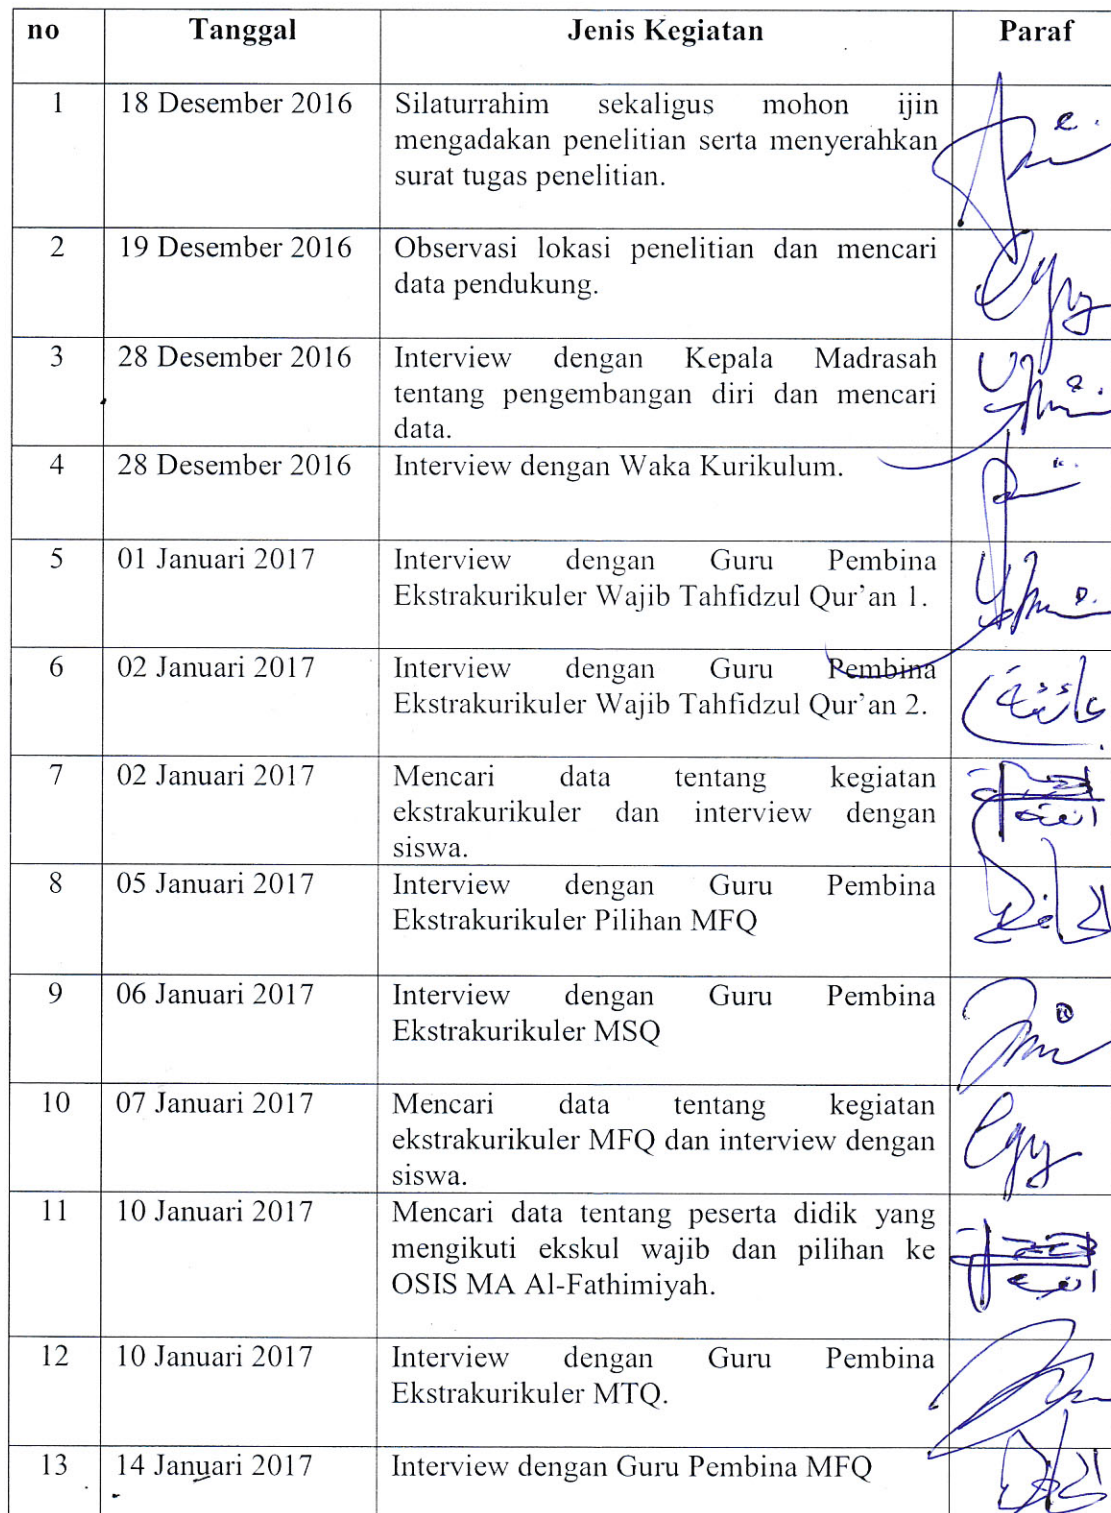 no Tanggal Jenis Kegiatan Paraf
1 18 Desember 2016 Silaturrahim sekaligus mohon ijin
mengadakan penelitian serta menyerahkan
surat tugas penelitian.
2 19 Desember 2016 Observasi lokasi penelitian dan mencari
data pendukung.
3 28 Desember 2016 Interview dengan Kepala Madrasah
tentang pengembangan diri dan mencari
data.
4 28 Desember 2016 Interview dengan Waka Kurikulum.
5 01 Januari 2017 Interview dengan Guru Pembina
Ekstrakurikuler Wajib Tahfidzul Qur'an 1.
6 02 Januari 2017 Interview dengan Guru Pembina
Ekstrakurikuler Wajib Tahfidzul Qur'an 2.
7 02 Januari 2017 Mencari data tentang kegiatan
ekstrakurikuler dan interview dengan
siswa.
8 05 Januari 2017 Interview dengan Guru Pembina
Ekstrakurikuler Pilihan MFQ
9 06 Januari 2017 Interview dengan Guru Pembina
Ekstrakurikuler MSQ
10 07 Januari 2017 Mencari data tentang kegiatan
ekstrakurikuler MFQ dan interview dengan
siswa.
11 10 Januari 2017 Mencari data tentang peserta didik yang
mengikuti ekskul wajib dan pilihan ke
OSIS MA Al-Fathimiyah.
12 10 Januari 2017 Interview dengan Guru Pembina
Ekstrakurikuler MTQ.
13 14 Januari 2017 Interview dengan Guru Pembina MFQ